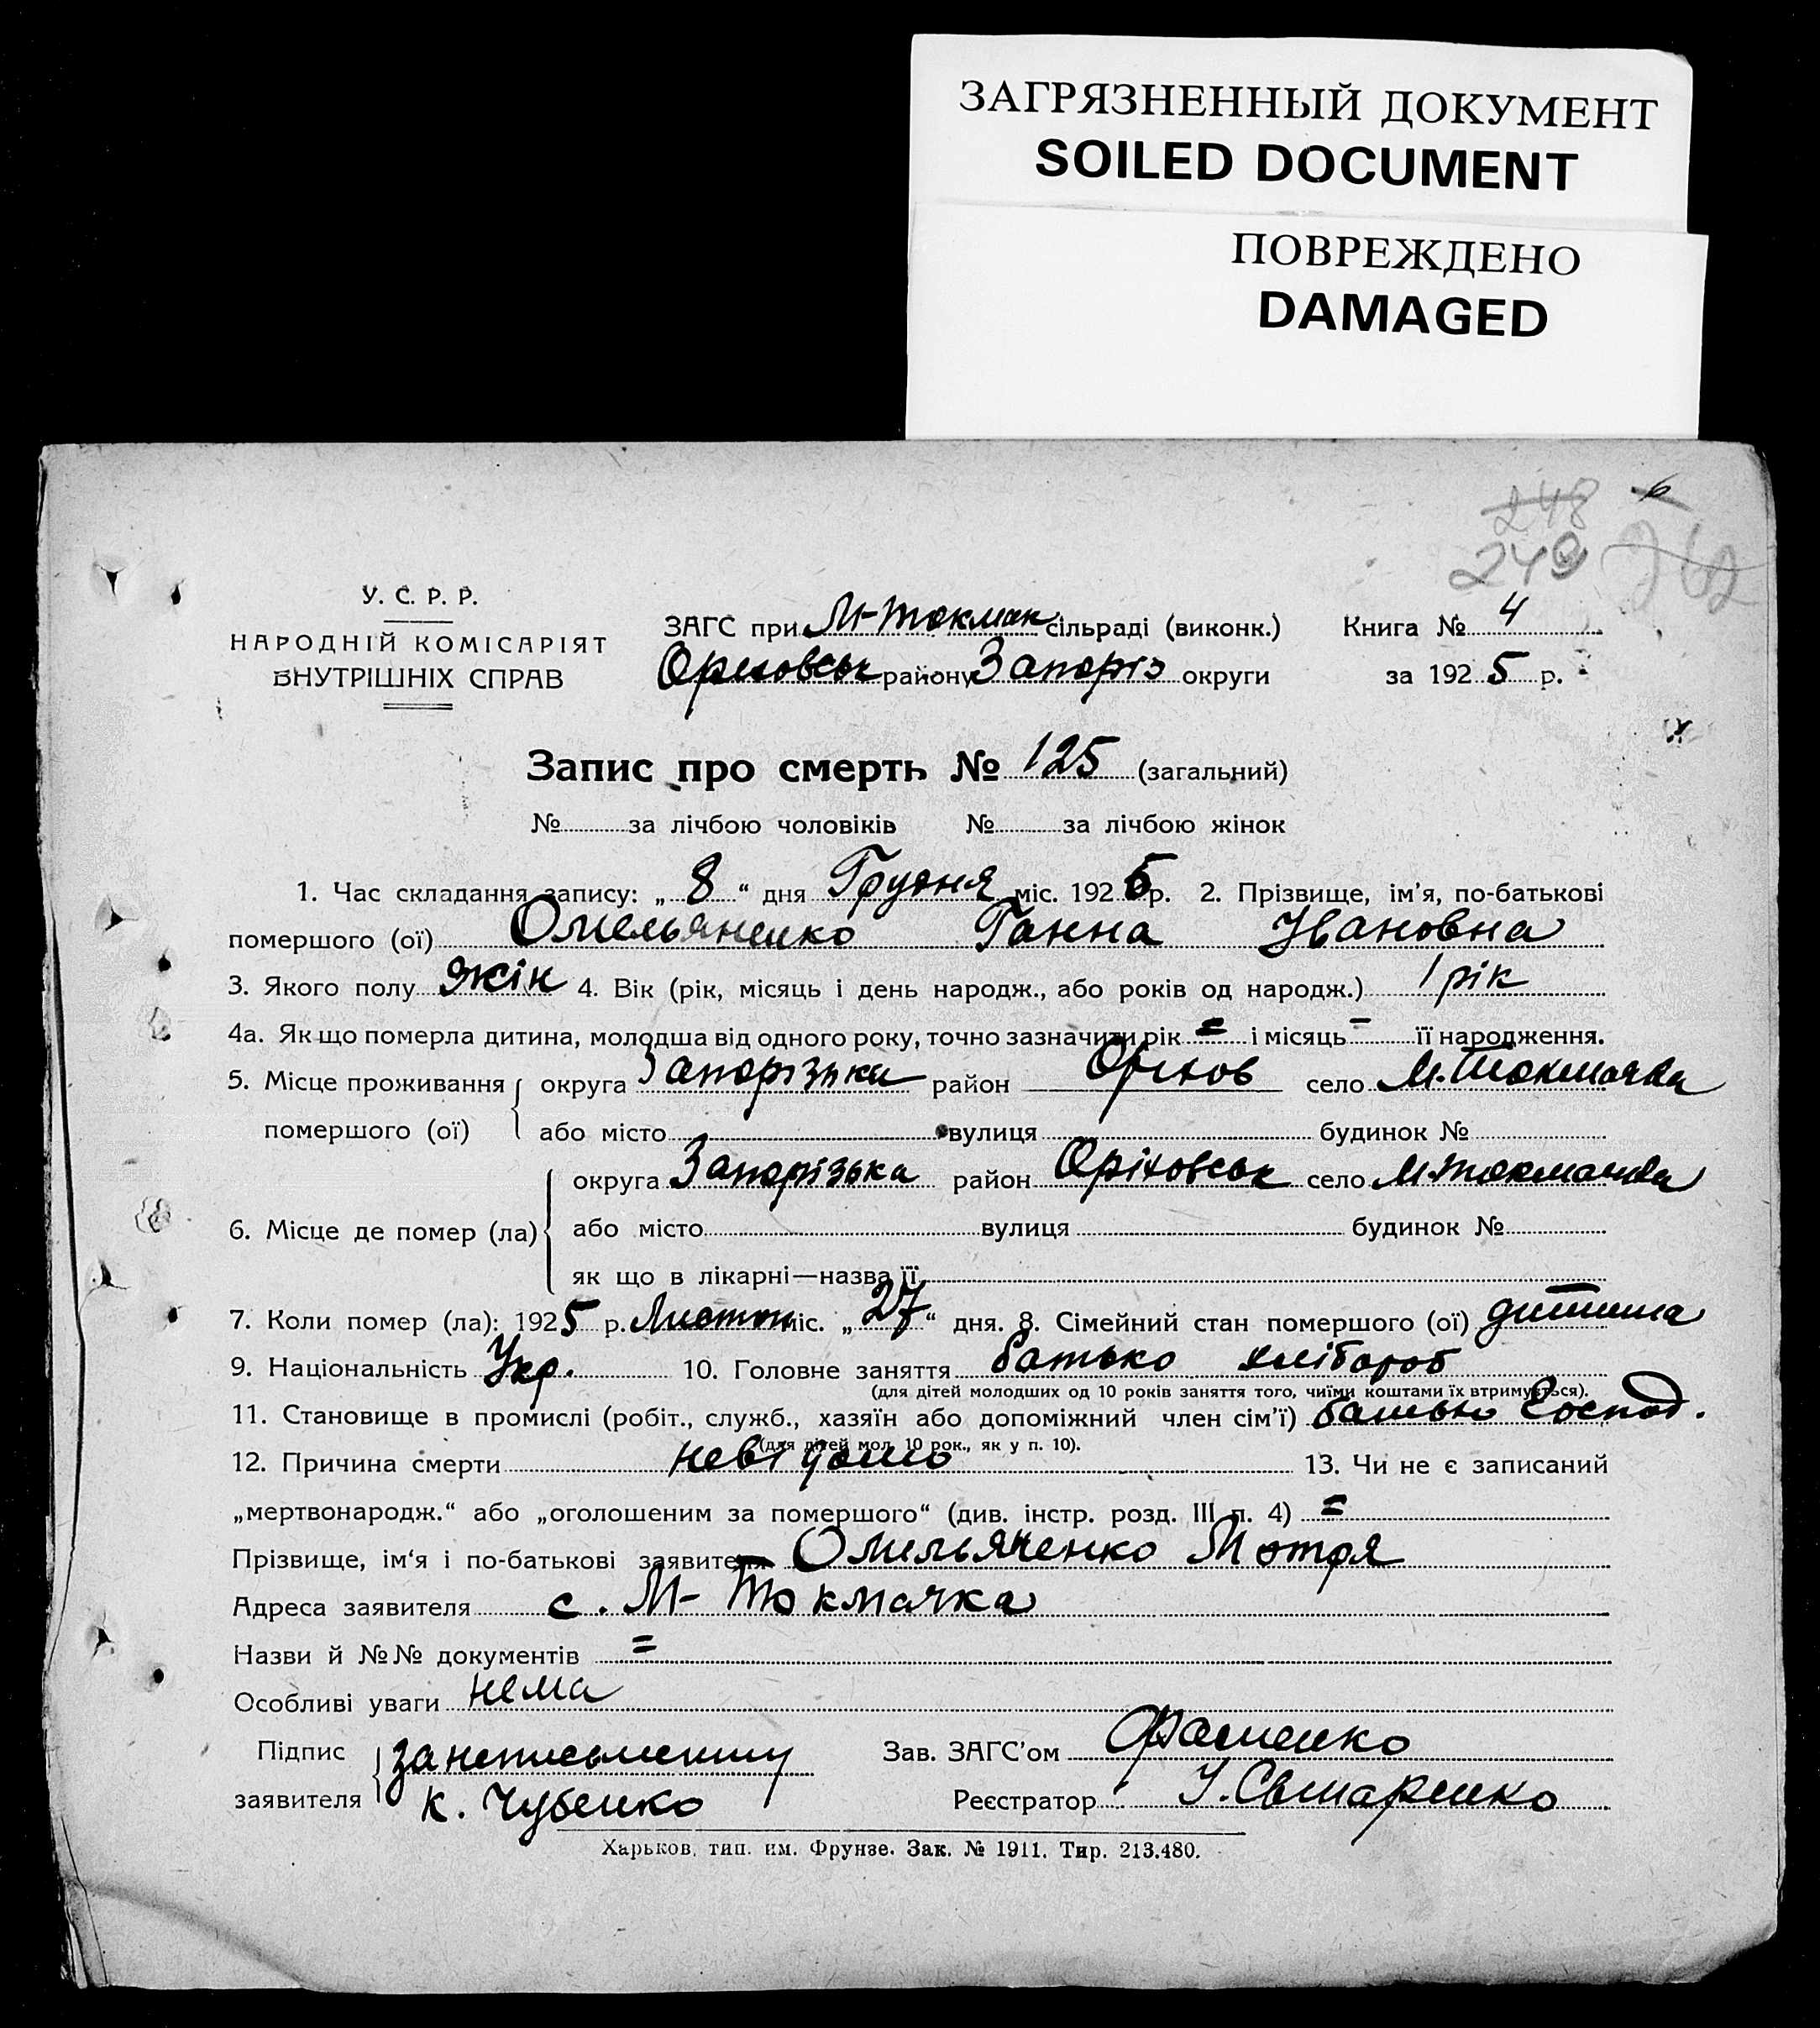 ЗАГРЯЗНЕННЫЙ ДОКУМЕНТ
SOILED DOCUMENT
ПОВРЕЖДЕНО
DAMAGED
248 6
249 262
У. С. Р. Р.
НАРОДНІЙ КОМІСАРІЯТ
ВНУТРІШНІХ СПРАВ
ЗАГС при М-Токмак сільраді (виконк.) Книга № 4
Ореховськ району Запоріз округи за 1925 р.
Запис про смерть № 125 (загальний)
№ за лічбою чоловіків № за лічбою жінок
1. Час складання запису: „ 8 “ дня Грудня міс. 1925 р. 2. Прізвище, ім'я, по-батькові
помершого (ої) Омельяненко Ганна Івановна
3. Якого полу жін 4. Вік (рік, місяць і день народж., або років од народж.) 1 рік
4а. Як що померла дитина, молодша від одного року, точно зазначити рік = і місяць – її народження.
5. Місце проживання округа Запорізька район Оріхов село М. Токмачка
помершого (ої) або місто вулиця будинок №
округа Запорізька район Оріховськ село М. Токмачка
6. Місце де помер (ла) або місто вулиця будинок №
як що в лікарні—назва її
7. Коли помер (ла): 1925 р. Листоп міс. „ 27 “ дня. 8. Сімейний стан помершого (ої) дитина
9. Національність Укр. 10. Головне заняття батько хлібороб
(для дітей молодших од 10 років заняття того, чиїми коштами їх втримується).
11. Становище в промислі (робіт., служб., хазяїн або допоміжний член сім'ї) батько Господ.
(для дітей мол. 10 рок., як у п. 10).
12. Причина смерти невідомо 13. Чи не є записаний
„мертвонародж.“ або „оголошеним за помершого“ (див. інстр. розд. III п. 4) =
Прізвище, ім'я і по-батькові заявителя Омильяненко Мотря
Адреса заявителя с. М-Токмачка
Назви й №№ документів =
Особливі уваги нема
Підпис за неписьменну Зав. ЗАГС'ом
заявителя К. Чубенко Реєстратор
Харьков, тип. им. Фрунзе. Зак. № 1911. Тир. 213.480.